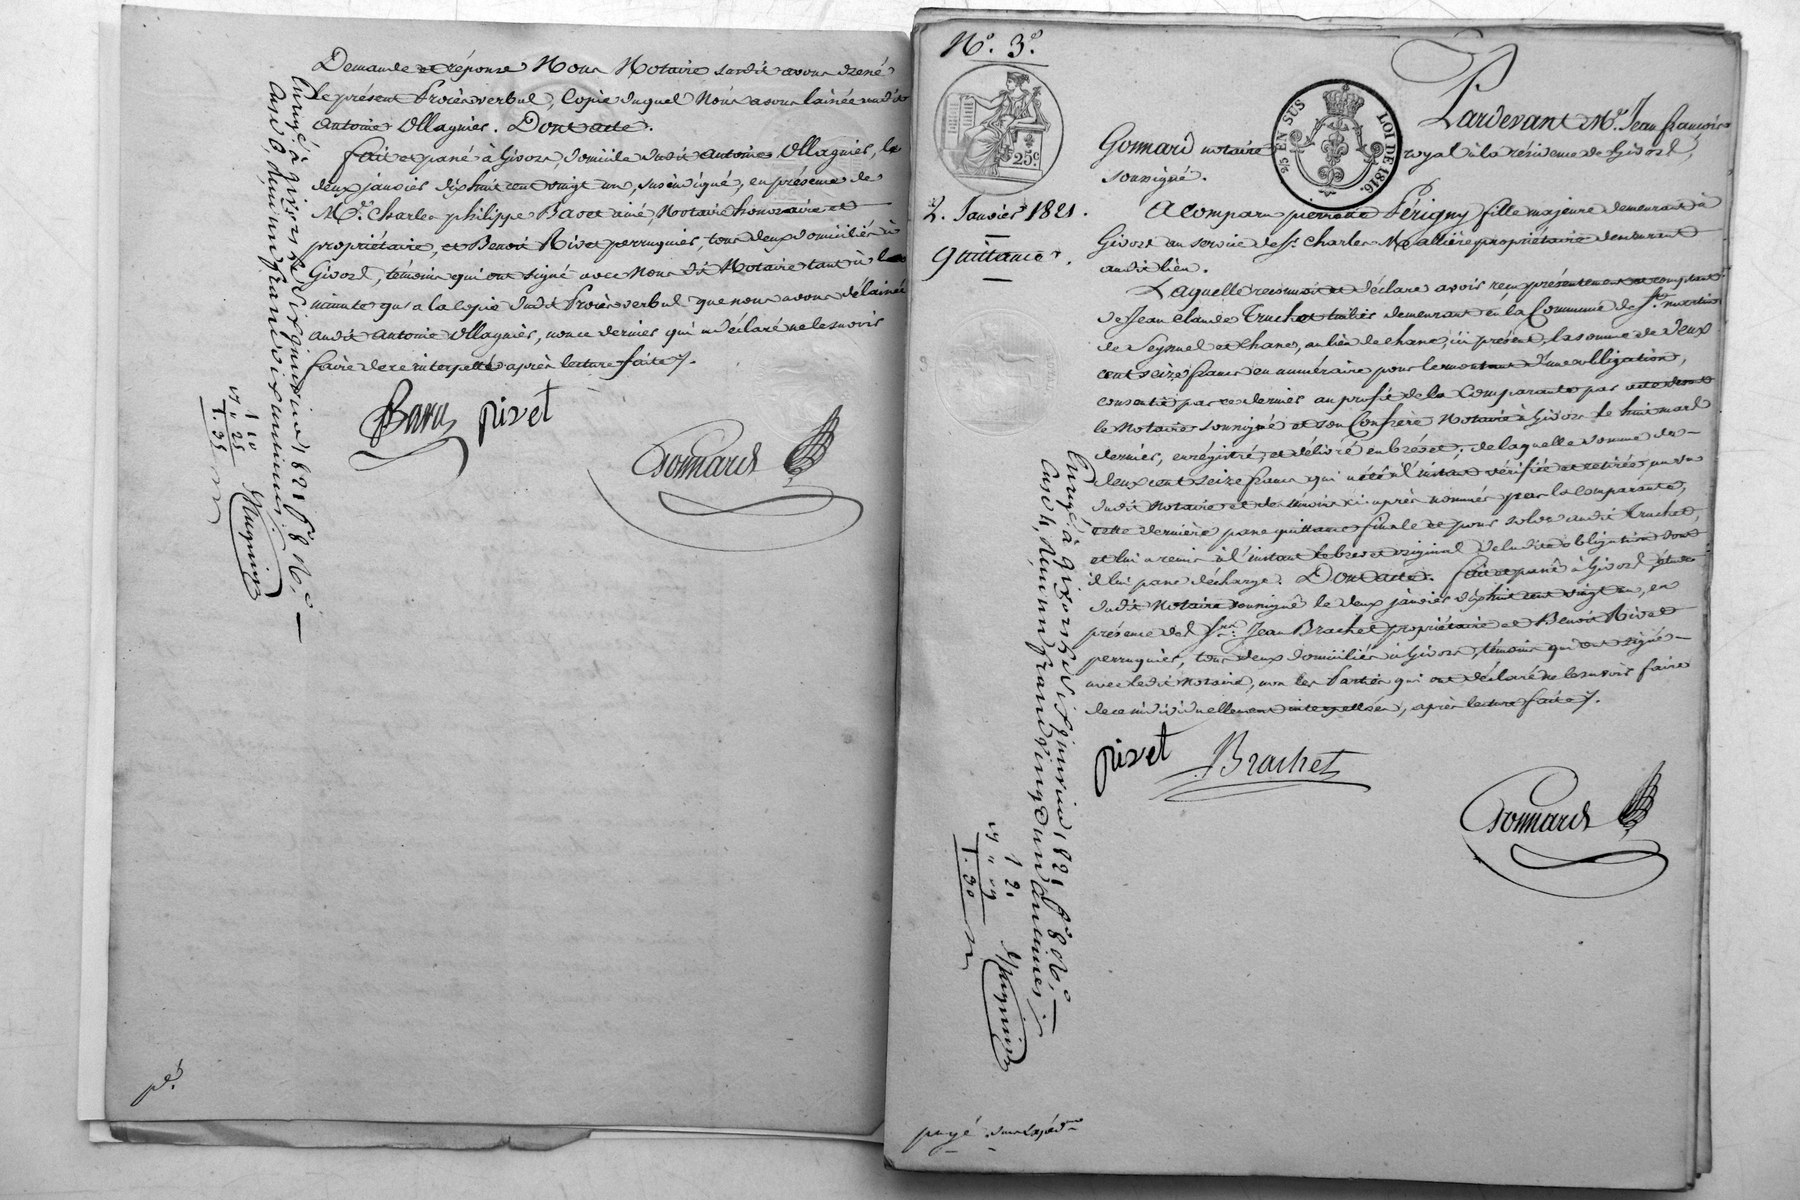 Demande et réponse Nous Notaire susdit avons dressé
le présent Procès verbal, Copie duquel Nous avons laissée audit
Antoine Ollagnier. Dont acte.
Fait et passé à Givors, domicile dudit Antoine Ollagnier, le
deux janvier dix huit cent vingt un, sus indiqué, en présence de
Mr. Charles philippe Bavet ainé, Notaire honoraire et
propriétaire, et Benoit Rivet perruquier, tous deux domiciliés à
Givors, témoins qui ont signé avec Nous dit Notaire tant à la
minute qu'à la copie dudit Procès verbal que nous avons délaissée
audit Antoine Ollagnier, non ce dernier qui a déclaré ne le savoir
faire de ce interpellé après lecture faite ./.
rivet
Gonnard
Enregé à givors le dix janvier 1821 fo 8 Ro, Co
1 10
" 25
1. 35
pé.
No. 3o.
25c
25 EN SUS
LOI DE 1816.
2. Janvier 1821.
Quittance.
Pardevant Me. Jean françois
Gonnard notaire royal à la résidence de Givors,
soussigné.
A comparu pierrette Périgny fille majeure demeurant à
Givors au service de Sr. Charles Mallière propriétaire demeurant
audit lieu.
Laquelle reconnoit et déclare avoir reçu présentement et comptant
de Jean Claude Truchet tuilier demeurant en la Commune de St. martin
de Seyssuel et Chane, au lieu de chane, ici présent, la somme de deux
cent seize francs en numéraire pour le montant d'une obligation,
consentie par ce dernier au profit de la Comparante par acte devant
le Notaire soussigné et son Confrère Notaire à Givors le huit mars
dernier, enregistré, et délivré en brevet; de laquelle somme de
deux cent seize francs qui a été à l'instant vérifiée et retirée, au vu
dudit Notaire et des témoins ci après nommés par la comparante,
cette dernière passe quittance finale et pour solde audit Truchet,
et lui a remis à l'instant le brevet original de ladite obligation dont
il lui passe décharge. Dont acte. Fait et passé à Givors étude
dudit Notaire soussigné le deux janvier dix huit cent vingt un, en
présence de Srs. Jean Brachet propriétaire et Benoit Rivet
perruquier, tous deux domiciliés à Givors, témoins qui ont signé
avec ledit Notaire, non les Parties qui ont déclaré ne le savoir faire
de ce individuellement interpellées, après lecture faite ./.
rivet Brachet
Gonnard
Enregé à givors le dix janvier 1821 fo 8 Ro, Co
1. 30
payé